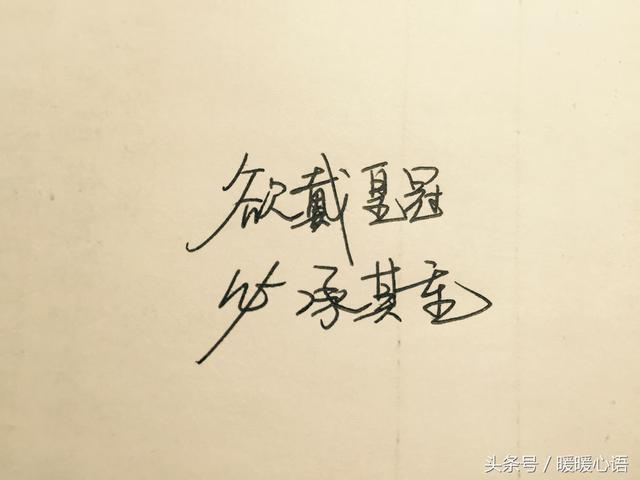 欲戴皇冠
必承其重
头条号 / 暖暖心语